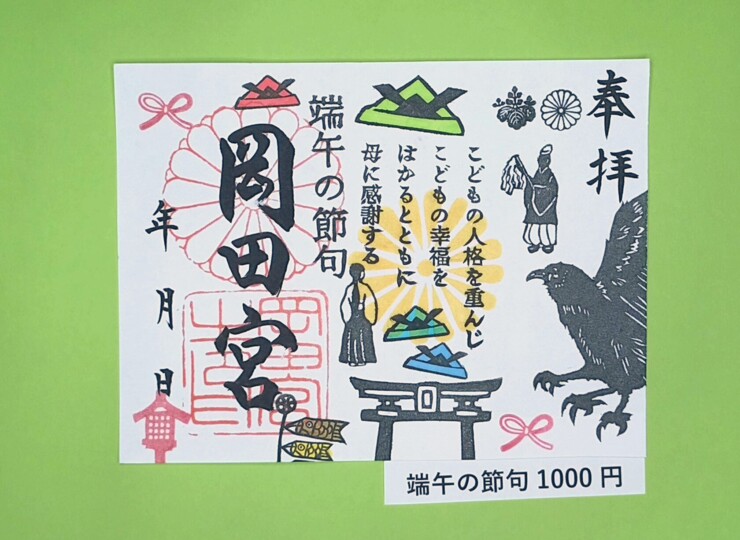 奉拝
こどもの人格を重んじ
こどもの幸福を
はかるとともに
母に感謝する
端午の節句
岡田宮
年 月 日
端午の節句 1000 円